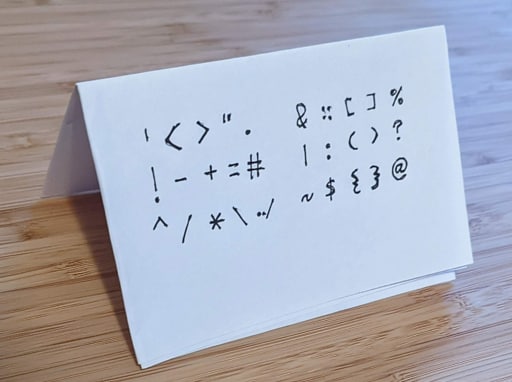 ' < > " . & :: [ ] %
! - + = # | : ( ) ?
^ / * \ ../ ~ $ { } @